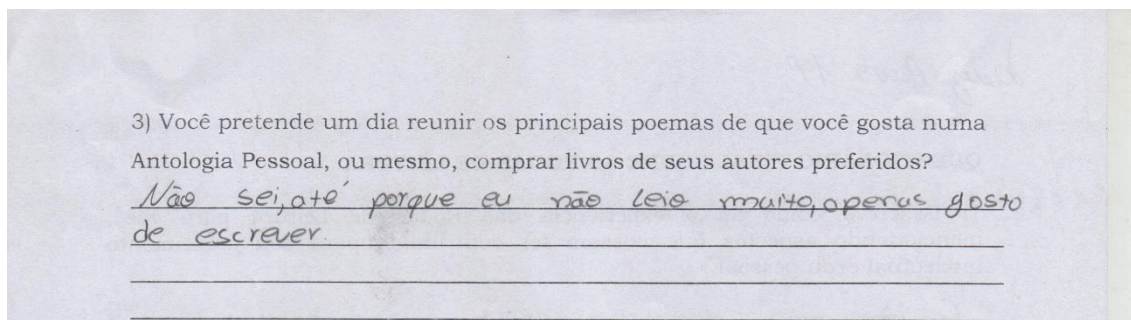 3) Você pretende um dia reunir os principais poemas de que você gosta numa
Antologia Pessoal, ou mesmo, comprar livros de seus autores preferidos?
Não sei, até porque eu não leio muito, apenas gosto
de escrever.